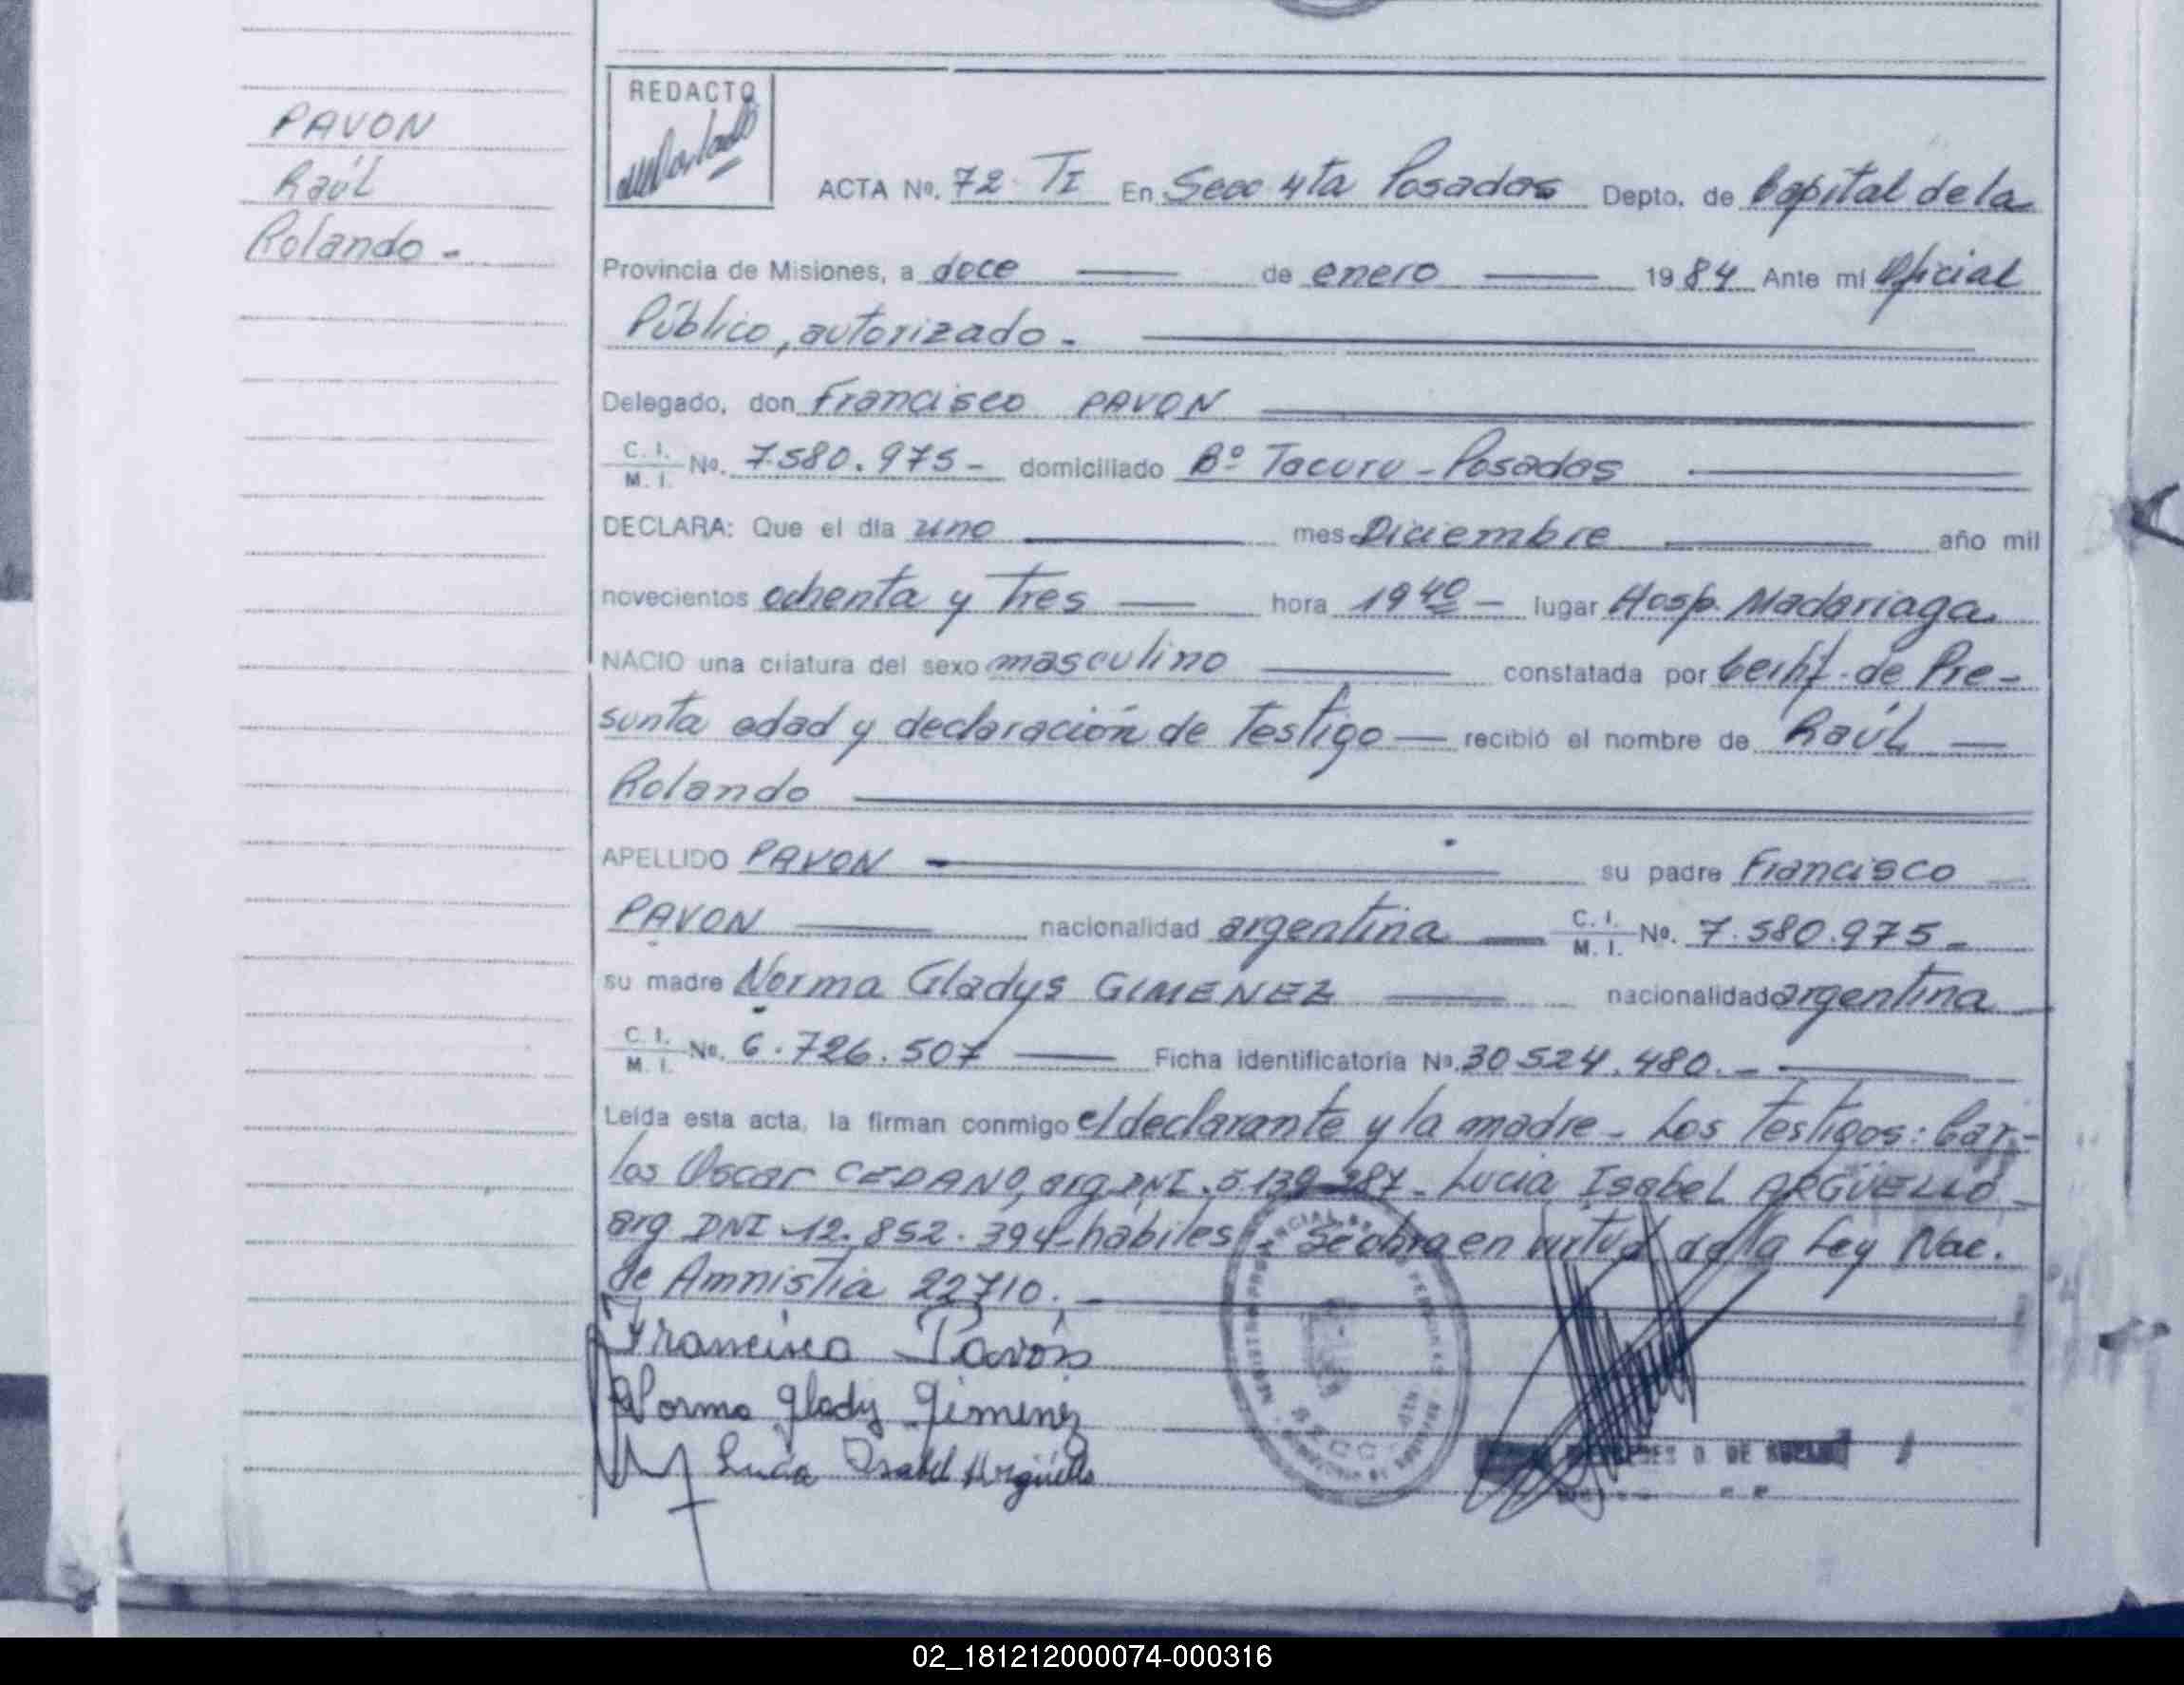 PAVON
Raúl
Rolando -
REDACTO
ACTA Nº. 72 TI En Secc 4ta Posadas Depto. de Capital de la
Provincia de Misiones, a doce de enero 1984 Ante mi Oficial
Público, autorizado.
Delegado, don Francisco PAVON
C. I. / M. I. Nº. 7.580.975- domiciliado Bº Tacuru - Posadas
DECLARA: Que el día uno mes Diciembre año mil
novecientos ochenta y tres hora 19 40 - lugar Hosp. Madariaga
NACIO una criatura del sexo masculino constatada por Certif. de Pre-
sunta edad y declaración de testigo recibió el nombre de Raúl
Rolando
APELLIDO PAVON su padre Francisco
PAVON nacionalidad argentina C. I. / M. I. Nº. 7.580.975-
su madre Norma Gladys GIMENEZ nacionalidad argentina
C. I. / M. I. Nº. 6.726.507 Ficha identificatoria Nº. 30.524.480.-
Leída esta acta, la firman conmigo el declarante y la madre - Los testigos: Car-
los Oscar CEDANO, arg DNI. 5.139.287- Lucia Isabel ARGÜELLO
arg DNI 12.852.394 hábiles - Se obra en virtud de la Ley Nac.
de Amnistia 22710.-
Francisco Pavón
Norma Glady Gimenez
Lucia Isabel Argüello
02_181212000074-000316